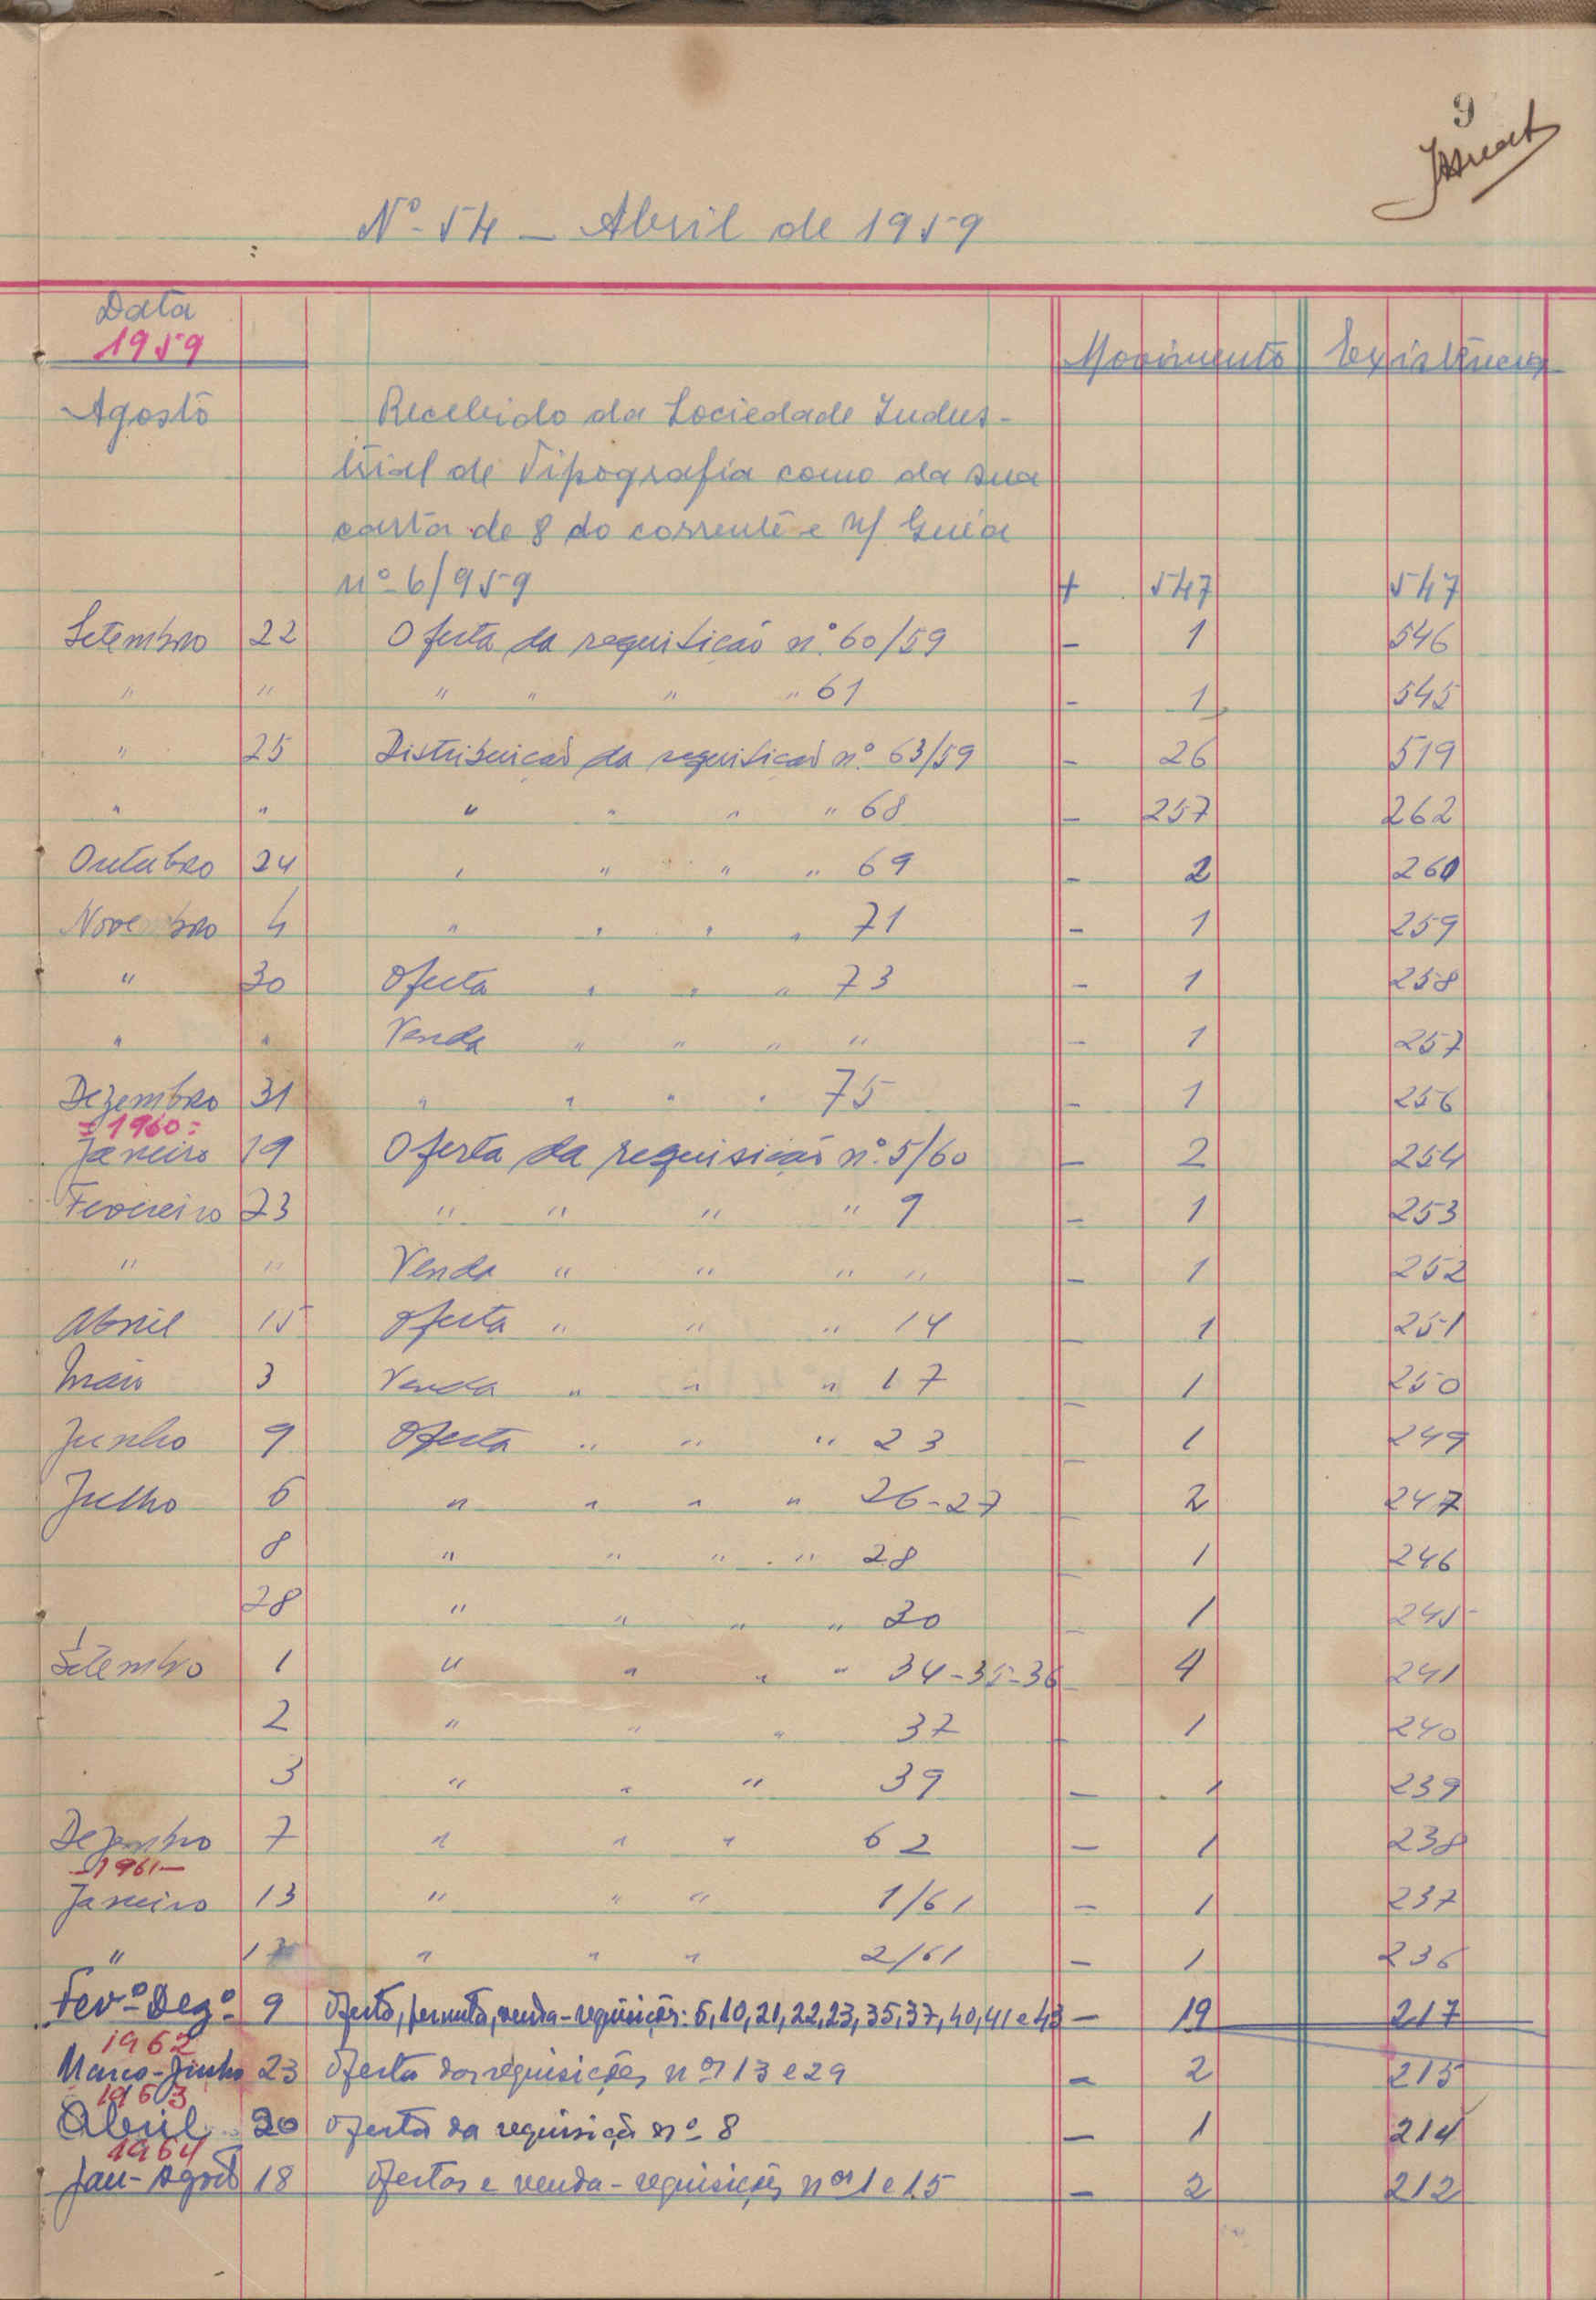 9
Nº 54 - Abril de 1959
Data
1959
Movimento Existência
Agosto Recebido da Sociedade Indus-
trial de Tipografia como da sua
carta de 8 do corrente e n/ Guia
nº 6/959 + 547 547
Setembro 22 Oferta da requisição nº 60/59 - 1 546
" " " " " " 61 - 1 545
" 25 Distribuição da requisição nº 63/59 - 26 519
" " " " " " 68 - 257 262
Outubro 24 " " " " 69 - 2 260
Novembro 4 " " " " 71 - 1 259
" 30 Oferta " " " 73 - 1 258
" " Venda " " " " - 1 257
Dezembro 31 " " " " 75 - 1 256
= 1960 =
Janeiro 19 Oferta da requisição nº 5/60 - 2 254
Fevereiro 23 " " " " 9 - 1 253
" " Venda " " " " - 1 252
Abril 15 Oferta " " " 14 - 1 251
Maio 3 Venda " " " 17 - 1 250
Junho 9 Oferta " " " 23 - 1 249
Julho 6 " " " " 26-27 - 2 247
8 " " " " 28 - 1 246
28 " " " " 30 - 1 245
Setembro 1 " " " " 34-35-36 - 4 241
2 " " " 37 - 1 240
3 " " " 39 - 1 239
Dezembro 7 " " " 62 - 1 238
-1961-
Janeiro 13 " " " 1/61 - 1 237
" " " " 2/61 - 1 236
Fevº Dezº 9 Oferta, permuta, venda-requisições: 5,10,21,22,23,35,37,40,41 e 43 - 19 217
1962
Março-Junho 23 Oferta das requisições nos 13 e 29 - 2 215
1963
Abril 20 Oferta da requisição nº 8 - 1 214
1964
Jan-Agosto 18 Ofertas e venda-requisições nos 1 e 15 - 2 212